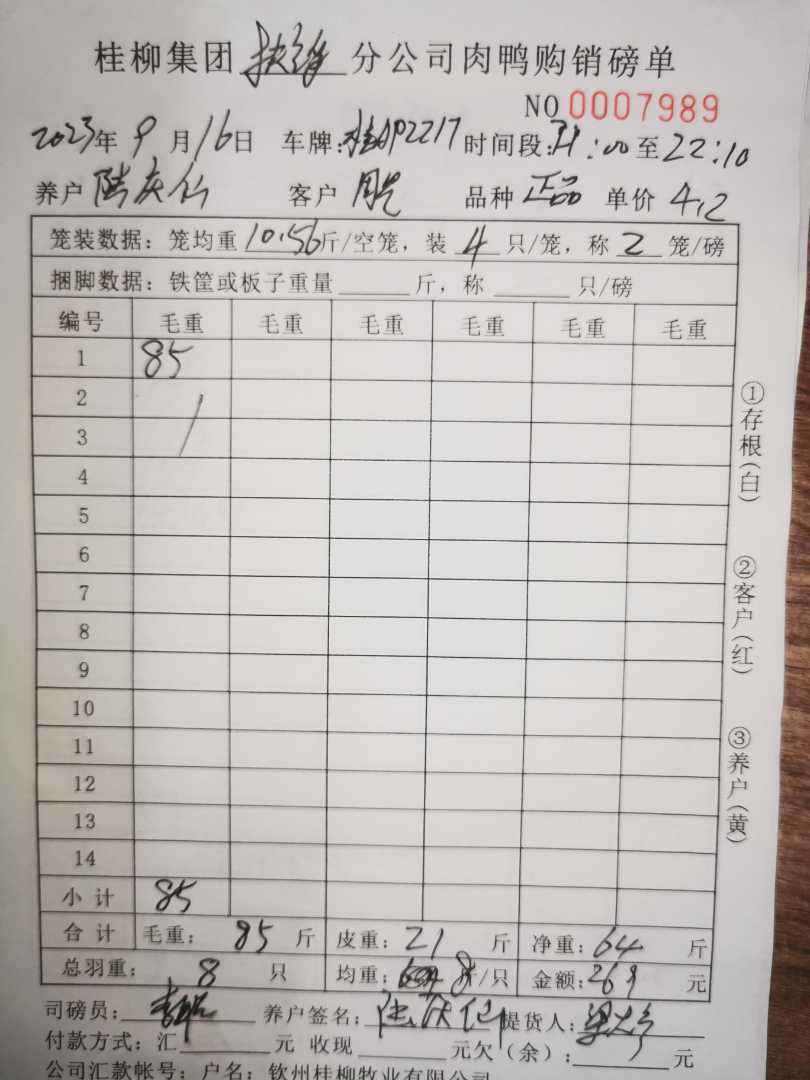 桂柳集团扶绥分公司肉鸭购销磅单
NO 0007989
2023年9月16日 车牌:桂AP2217 时间段:21:00至22:10
养户 陆庆仁 客户 品种 正品 单价 4.2
笼装数据：笼均重 10.56斤/空笼，装 4 只/笼，称 2 笼/磅
捆脚数据：铁筐或板子重量______斤，称______只/磅
编号 毛重 毛重 毛重 毛重 毛重 毛重
1 85
2
3
4
5
6
7
8
9
10
11
12
13
14
小计 85
合计 毛重：85斤 皮重：21斤 净重：64斤
总羽重：8只 均重：8/只 金额：269元
司磅员： 养户签名： 提货人：
付款方式：汇______元 收现______元欠（余）：______元
公司汇款帐号：户名：钦州桂柳牧业有限公司
①存根(白)
②客户(红)
③养户(黄)